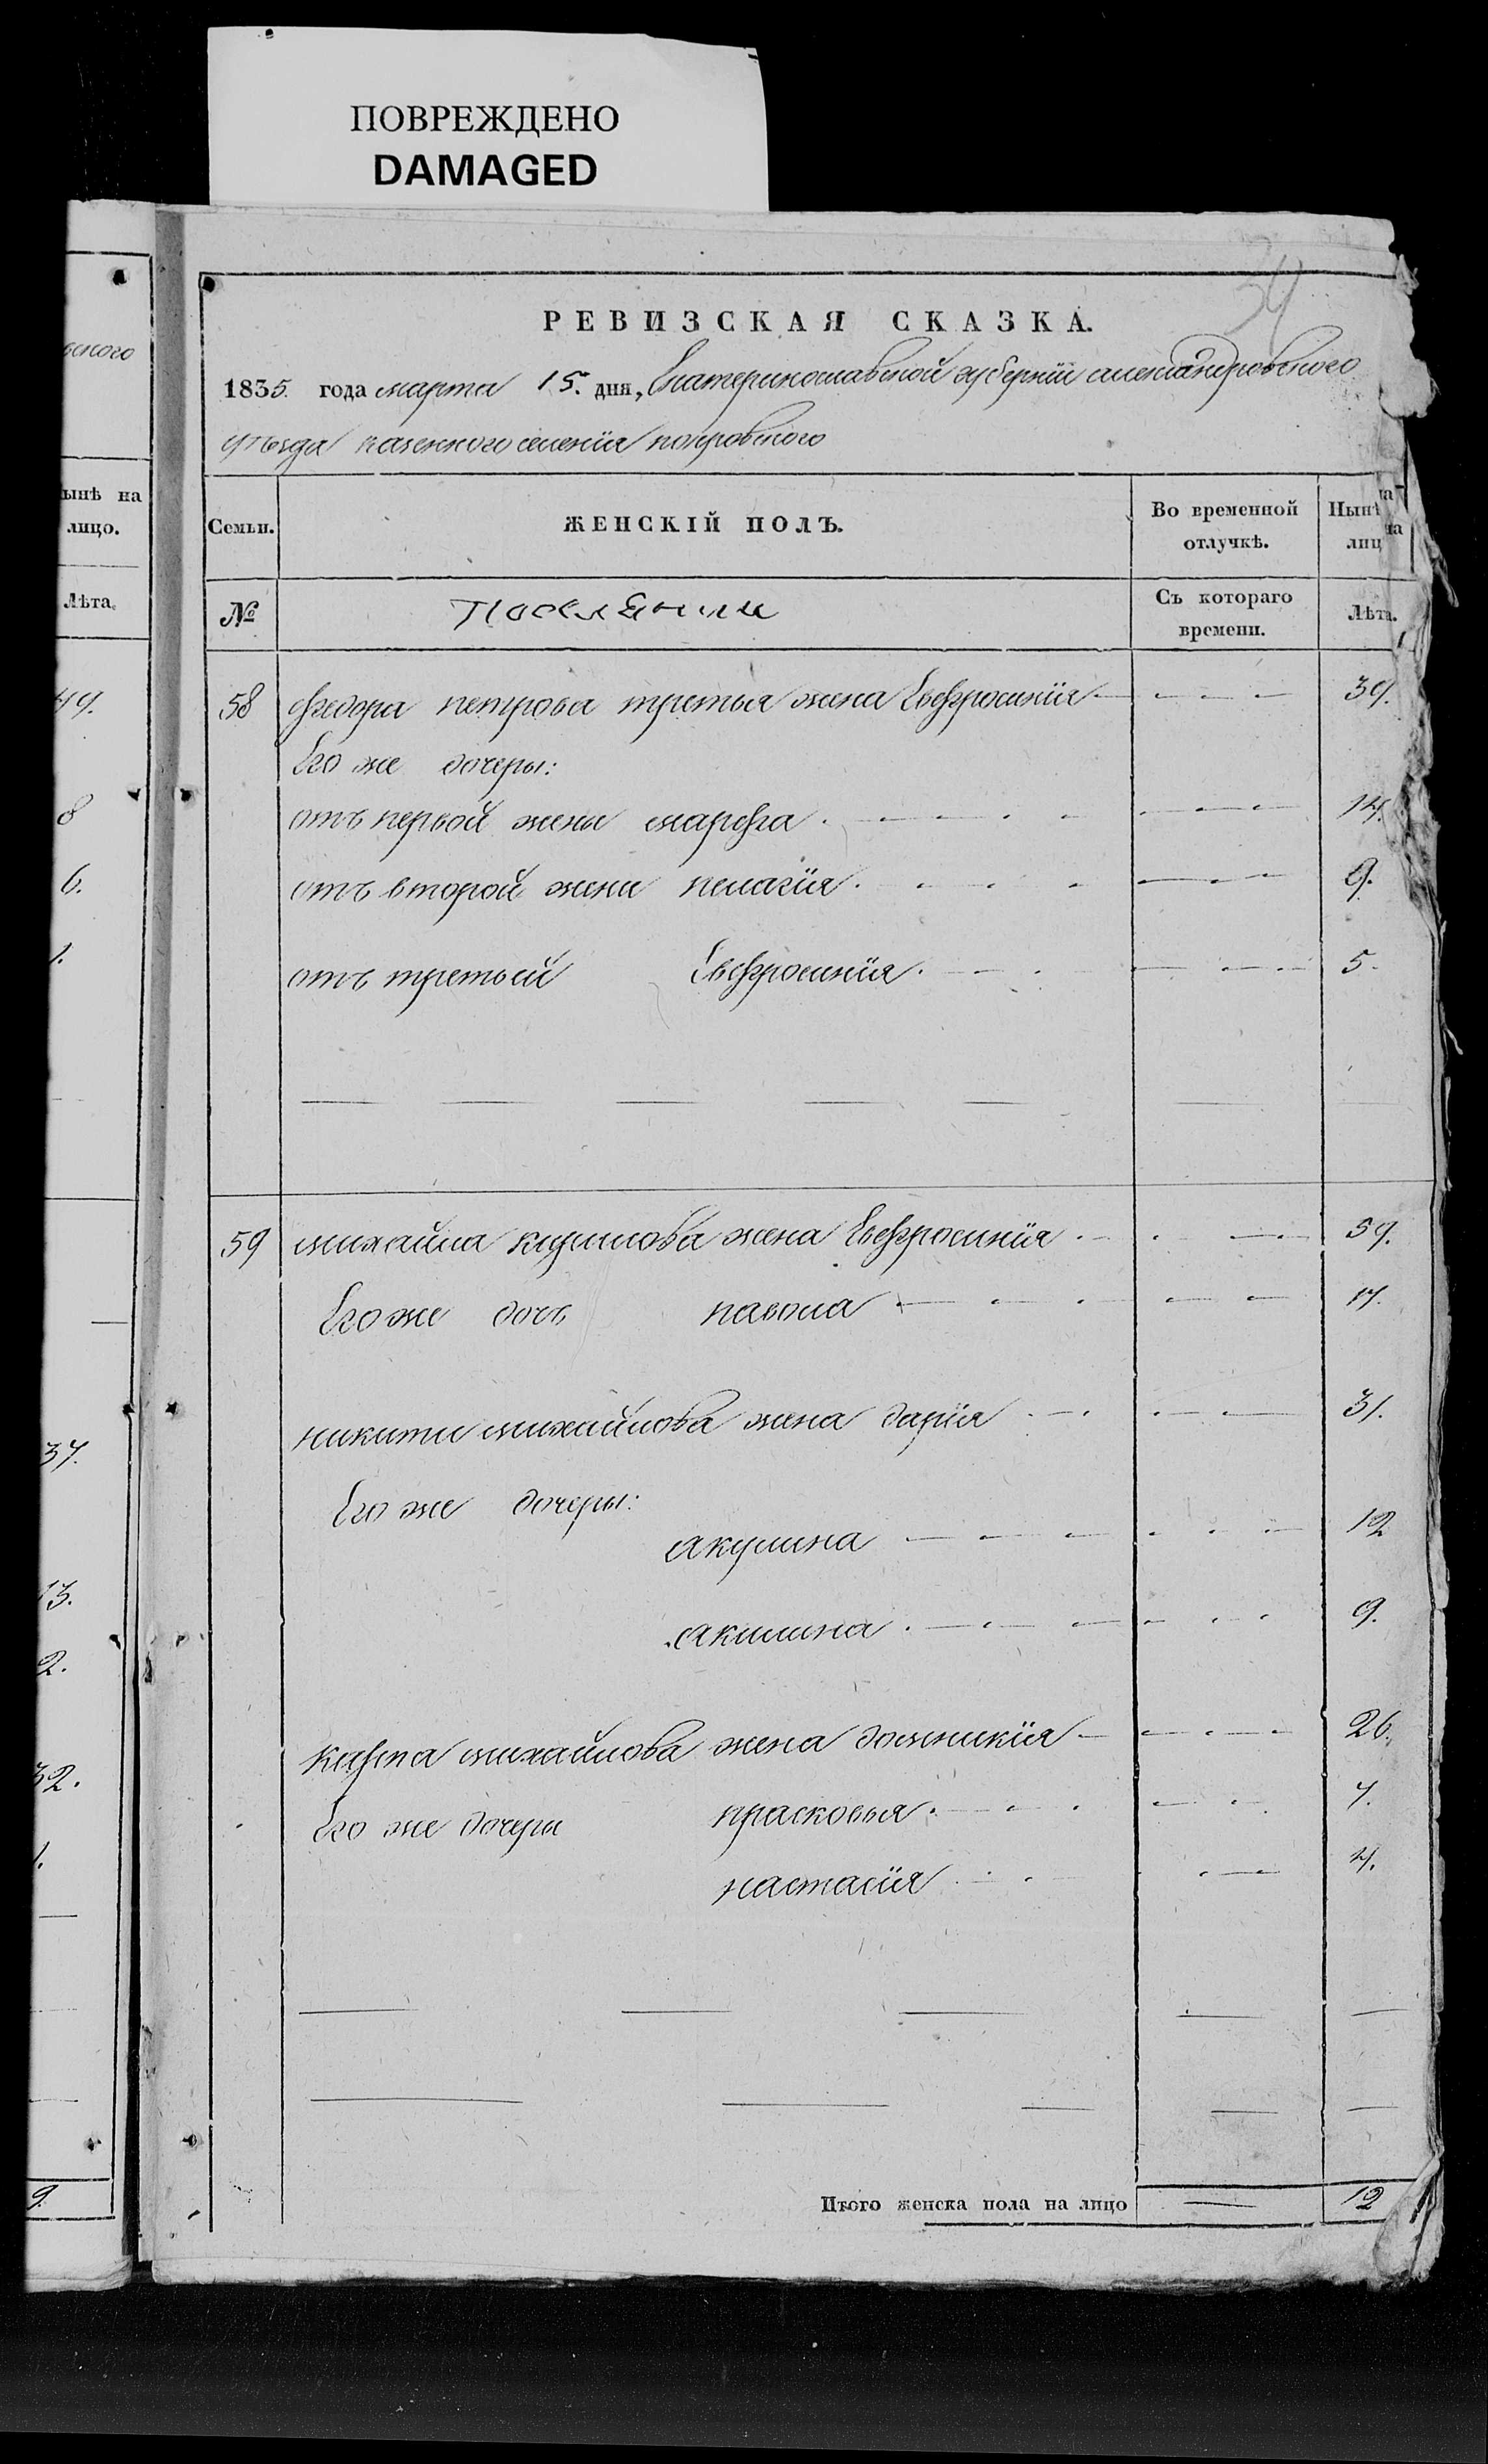 ПОВРЕЖДЕНО
DAMAGED
34
РЕВИЗСКАЯ СКАЗКА.
1835. года марта 15. дня, Екатеринославской губернїи александровского
уѣзда казенного селенїя покровского
Семьи.
ЖЕНСКІЙ ПОЛЪ.
Во временной отлучкѣ.
Нынѣ на лицо
№
Поселянии
Съ котораго времени.
Лѣта.
58 Федора петрова третья жена Евфросинїя 39.
Его же дочеры:
отъ первой жены марфа 14.
отъ второй жены пелагїя 9.
отъ третьей Евфросинїя 5.
59 михайла кирилова жена Евфросинїя 59.
Его же дочь павола 17.
никиты михайлова жена дарїя 31.
Его же дочеры:
акулина 12
акилина 9.
карпа михайлова жена домникїя 26.
Его же дочеры прасковья 7.
настасїя 4.
Итого женска пола на лицо 12
ьского
ынѣ на
лицо.
Лѣта.
49.
8
6.
1.
37.
13.
2.
32.
1.
9.